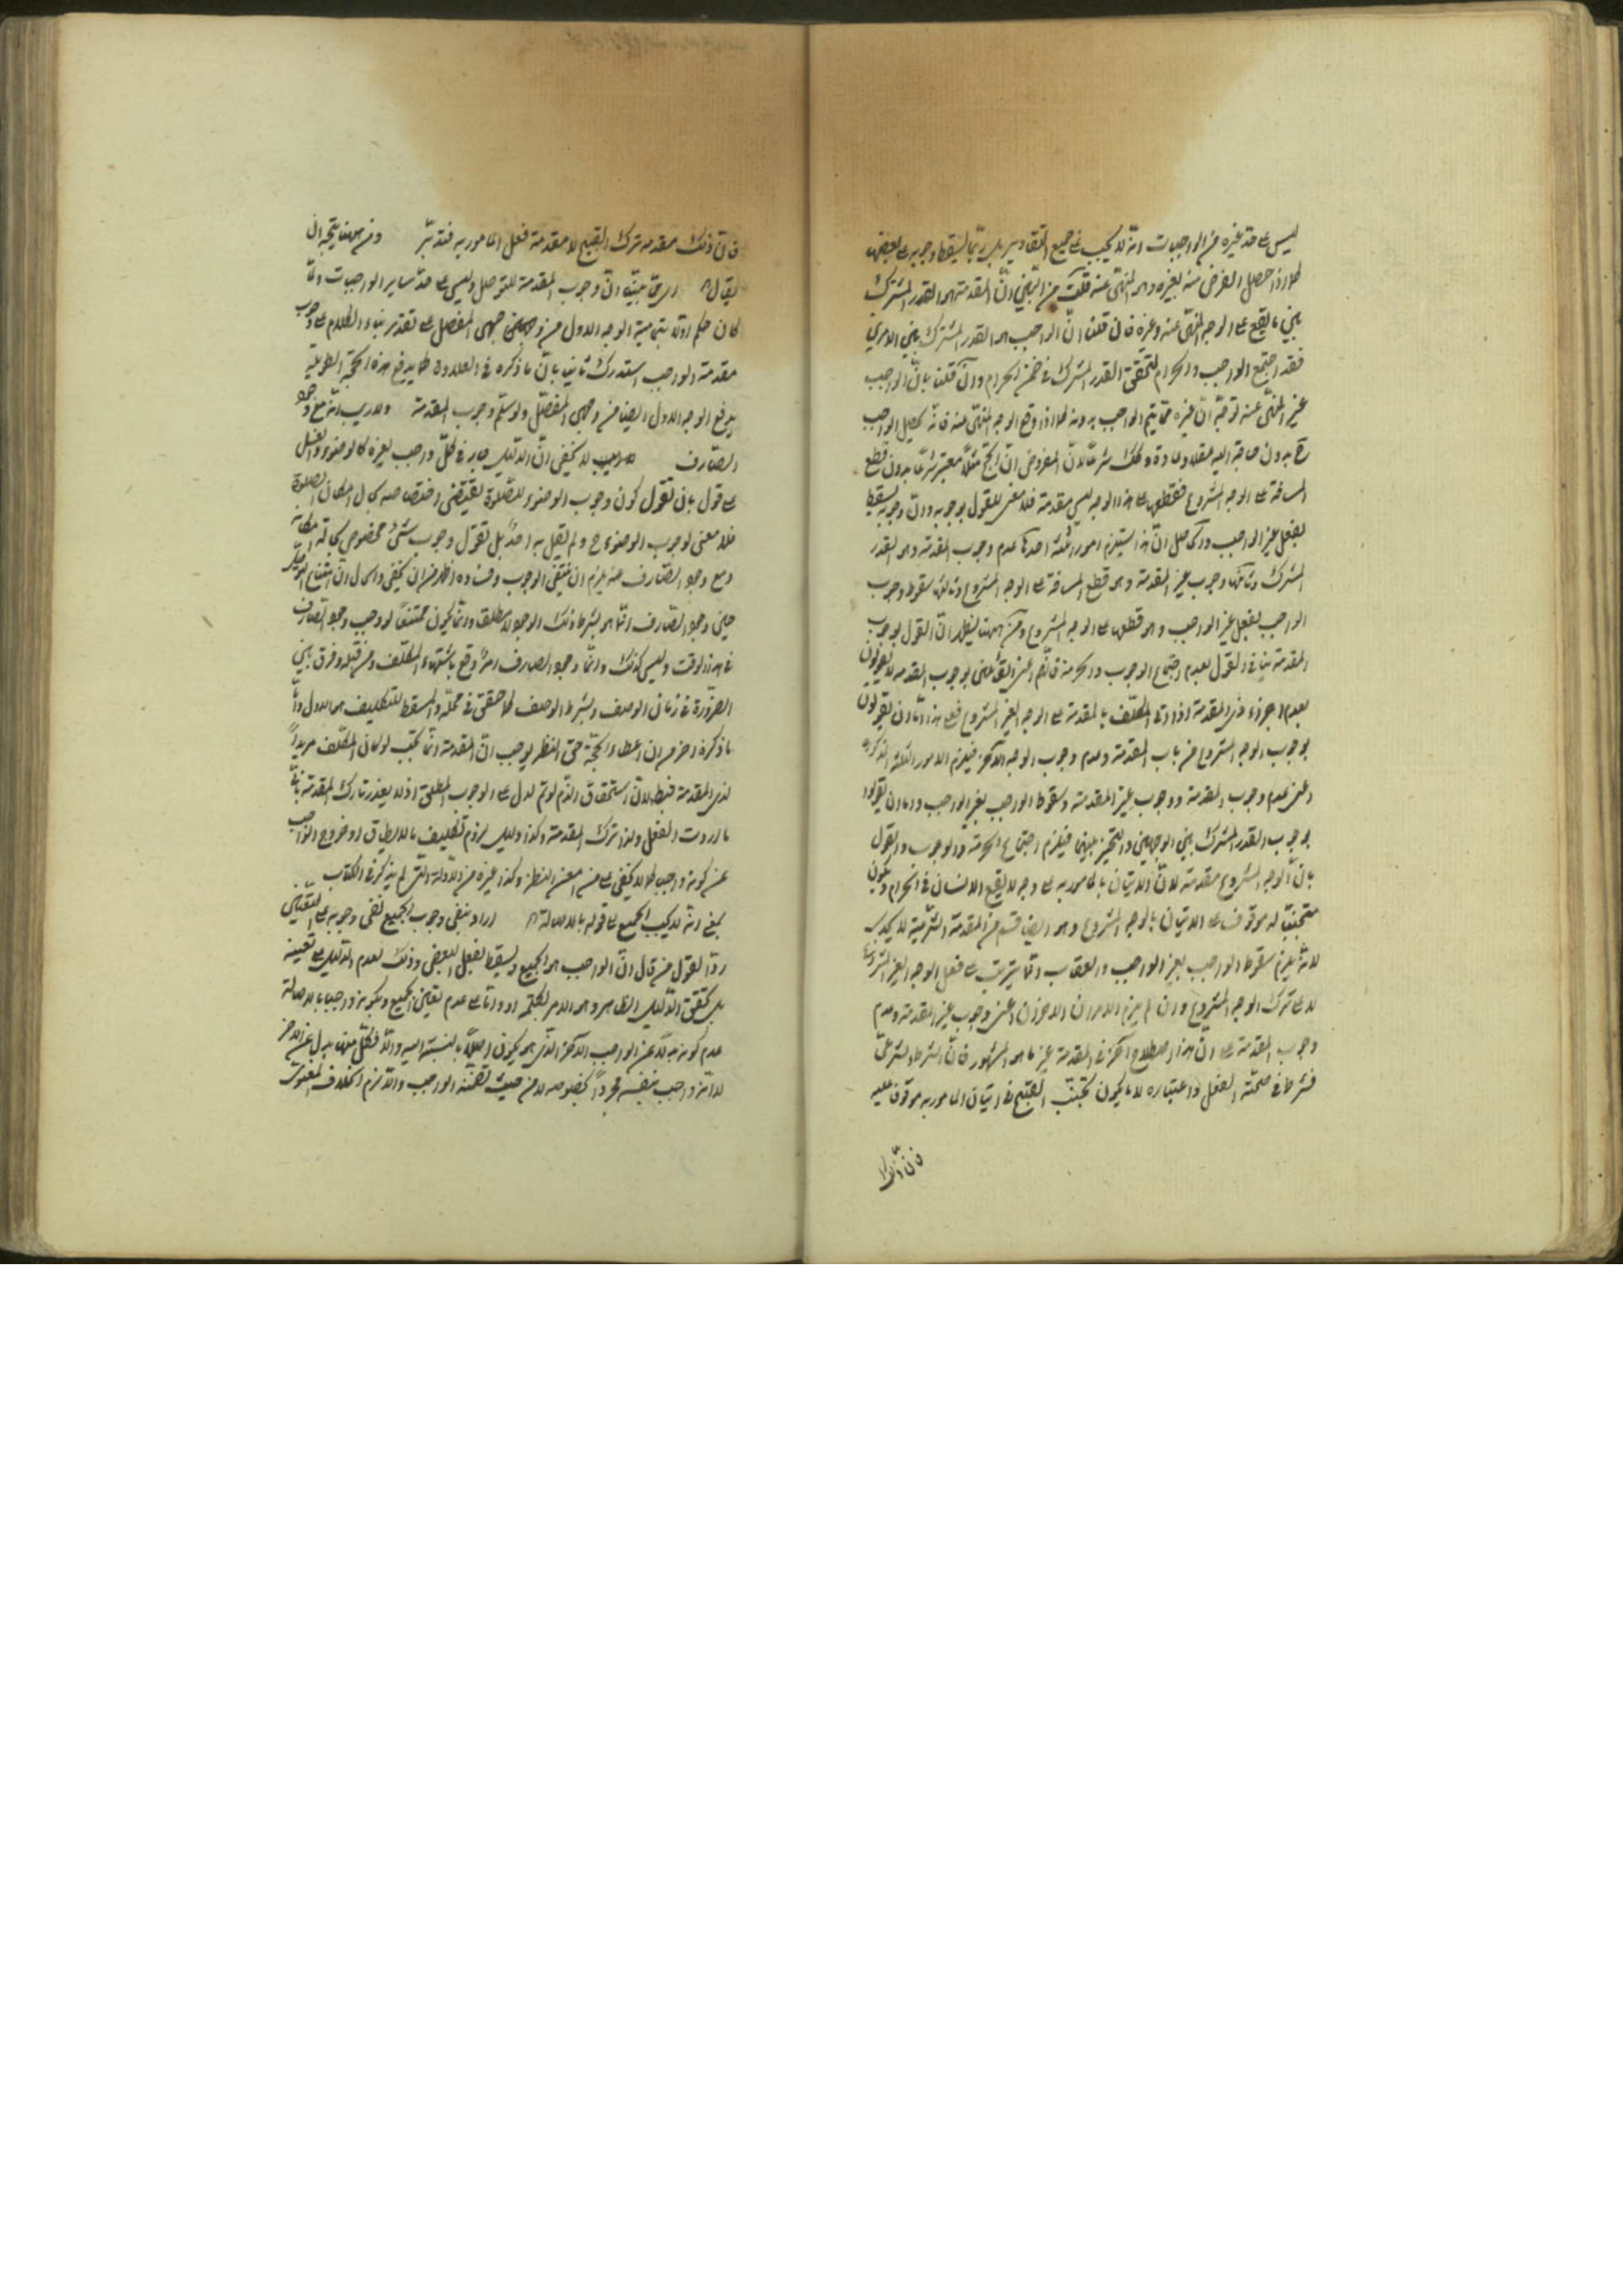 ليس على حد غيره من الواجبات انه لا يجب في جميع التقادير بل ربما يسقط وجوبه على بعضها
كما اذا حصل الغرض منه بغيره وهو المنهى عنه قلت من البين ان المقدمة هو القدر المشترك
بين ما يقع على الوجه المنهى عنه وغيره فان قلنا ان الواجب هو القدر المشترك بين الامرين
فقد اجتمع الواجب والحرام لتحقق القدر المشترك في ضمن الحرام وان قلنا بان الواجب
غير المنهى عنه توجه ان غيره مما يتم الواجب بدونه كما اذا وقع الوجه المنهى عنه فانه يحصل الواجب
ح بدون حاجة اليه عقلا وعادة وكك شرعا لان المفروض ان الحج مثلا معتبر شرعا بدون قطع
المسافة على الوجه المشروع فقطعها على هذا الوجه ليس مقدمة فلا معنى للقول بوجوبه وان وجوبه يسقط
بفعل غير الواجب والحاصل ان هذا يستلزم امور ثلثة احدها عدم وجوب المقدمة وهو القدر
المشترك وثانيها وجوب غير المقدمة وهو قطع المسافة على الوجه المشروع وثالثها سقوط وجوب
الواجب بفعل غير الواجب وهو قطعها على الوجه الغير المشروع ومن ههنا يظهر ان القول بوجوب
المقدمة ينافي القول بعدم اجتماع الوجوب والحرمة فانهم اعنى القائلين بوجوب المقدمة لا يقولون
بعدم اجزاء ذى المقدمة اذا اتى المكلف بالمقدمة على الوجه الغير المشروع فعلى هذا اما ان يقولون
بوجوب الوجه المشروع من باب المقدمة وعدم وجوب الوجه الاخر فيلزم الامور الثلثة المذكورة
اعنى عدم وجوب المقدمة ووجوب غير المقدمة وسقوط الواجب بغير الواجب واما ان يقولوا
بوجوب القدر المشترك بين الوجهين والتخيير بينهما فيلزم اجتماع الحرمة والوجوب والقول
بان الوجه المشروع مقدمة لان الاتيان بالمامور به على وجه لا يقع الانسان في الحرام ويكون
متجنبا له موقوف على الاتيان بالوجه المشروع وهو ايضا قسم من المقدمة الشرعية لا يجدى
لانه يلزم سقوط الواجب بغير الواجب والعقاب انما يترتب على فعل الوجه الغير المشروع
لا على ترك الوجه المشروع وان لم يلزم الامران الاخران اعنى وجوب غير المقدمة وعدم
وجوب المقدمة على ان هذا اصطلاح اخر في المقدمة غير ما هو المشهور فان الشرط الشرعى
شرط في صحة الفعل واعتباره لا ما يكون تجنب القبيح في اتيان المامور به موقوفا عليه
فان ذلك
فان ذلك مقدمه ترك القبيح لا مقدمة فعل المامور به فتدبر ومن ههنا يتجه ان
يقال اى مما بينا ان وجوب المقدمة للتوصل وليس على حد ساير الواجبات ولما
كان حكم اولا بتمامية الوجه الاول من وجهى المفصل على تقدير بناء الكلام على وجوب
مقدمة الواجب استدرك ثانيا بان ما ذكره في العلاوة كما يدفع هذه الحجة الطويلة
يدفع الوجه الاول ايضا من وجهى المفصل ولو سلم وجوب المقدمة ولا ريب انه مع وجود
الصارف لا يخفى ان الدليل جار في كل واجب لغيره كالوضوء والغسل
على قول بان نقول كون وجوب الوضوء للصلوة يقتضى اختصاصه بحال امكان الصلوة
فلا معنى لوجوب الوضوء ح ولم يقل به احد بل نقول وجوب شئ مخصوص بحالة امكانه
ومع وجود الصارف عنه يلزم ان ينتفى الوجوب وفساده اظهر من ان يخفى والحل ان امتناع التوصل
حين وجود الصارف انما هو بشرط ذلك الوجود لا مطلق وانما يكون ممتنعا لو وجب وجود الصارف
في هذا الوقت وليس كذلك وانما وجود الصارف امر وقع باشتهاء المكلف ومن قبله وفرق بين
الضرورة في زمان الوصف وبشرط الوصف كما حقق في محله والمسقط للتكليف هو الاول واما
ما ذكره اخر من ان اعطاء الحجة حق النظر يوجب ان المقدمة انما تجب لو كان المكلف مريدا
لذى المقدمة فبطلانه لان استحقاق الذم لو تم لدل على الوجوب المطلق اذ لا يعذر تارك المقدمة بانه
ما اردت الفعل ولذا تركت المقدمة وكذا دليل لزوم تكليف ما لا يطاق او خروج الواجب
عن كونه واجبا كما لا يخفى على من امعن النظر وكذا غيره من الادلة التى لم يذكر في الكتاب
بمعنى انه لا يجب الجميع على قوله بالاصالة اراد بنفى وجوب الجميع نفى وجوبه على التعيين
ردا لقول من قال ان الواجب هو الجميع ويسقط بفعل البعض وذلك لعدم الدليل على تعيينه
بل تحقق الدليل الظاهر وهو الامر بكلمة او دالا على عدم تعيين الجميع وبكونه واجبا بالاصالة
عدم كونه بدلا عن الواجب الاخر الذى هو يكون اصلا بالنسبة اليه والا فكل منهما بدل عن الاخر
لا انه واجب بنفسه مجردا بخصوصه لا من حيث تضمنه الواجب والا لزم الخلاف المعنوى